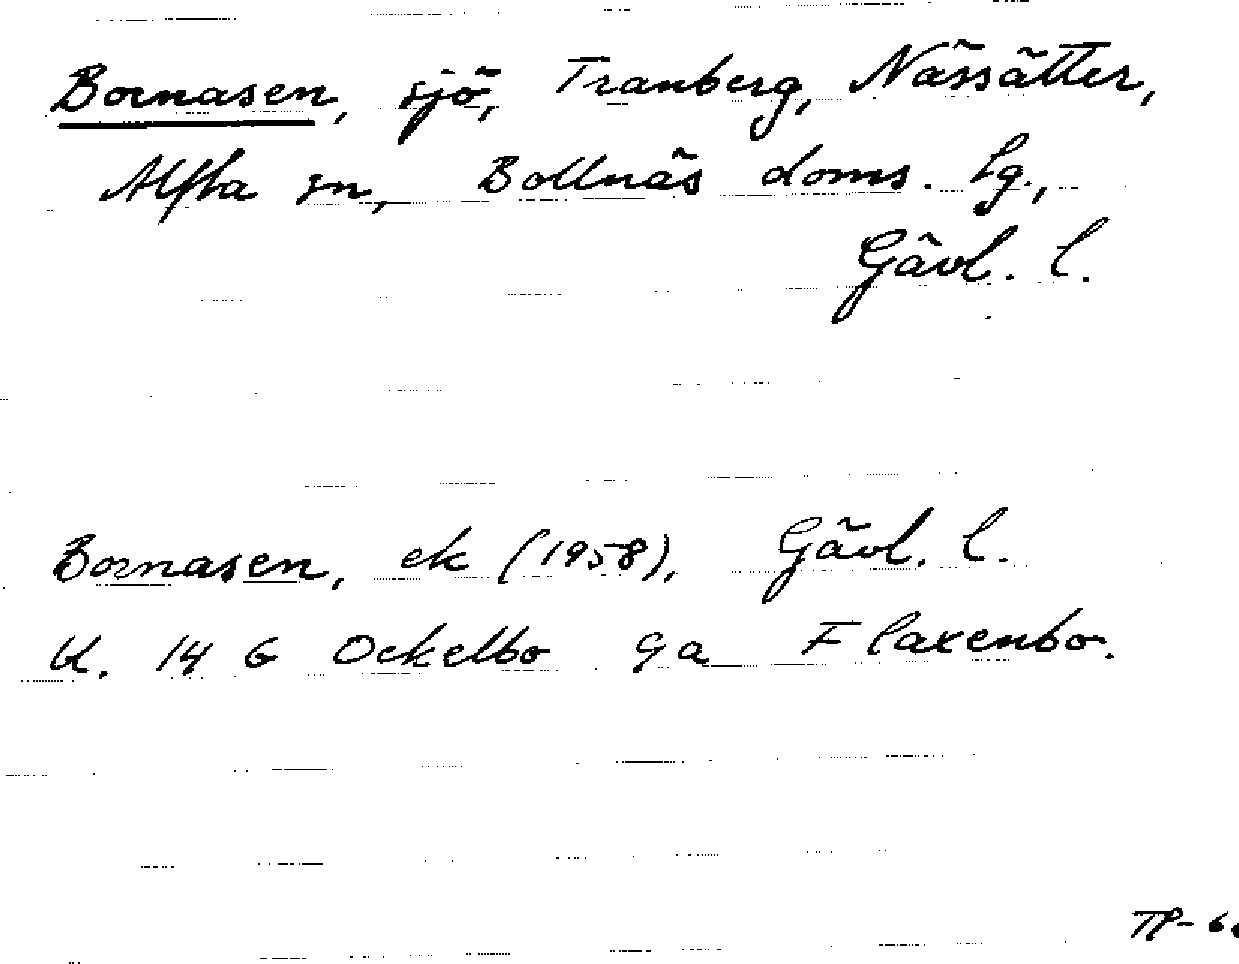 Bornasen, sjö, Tranberg, Nässätter,
Alfta sn, Bollnäs doms. lg.,
Gävl. l.
Bornasen, ek (1958), Gävl. l.
K. 14 G Ockelbo 9 a Flaxenbo.